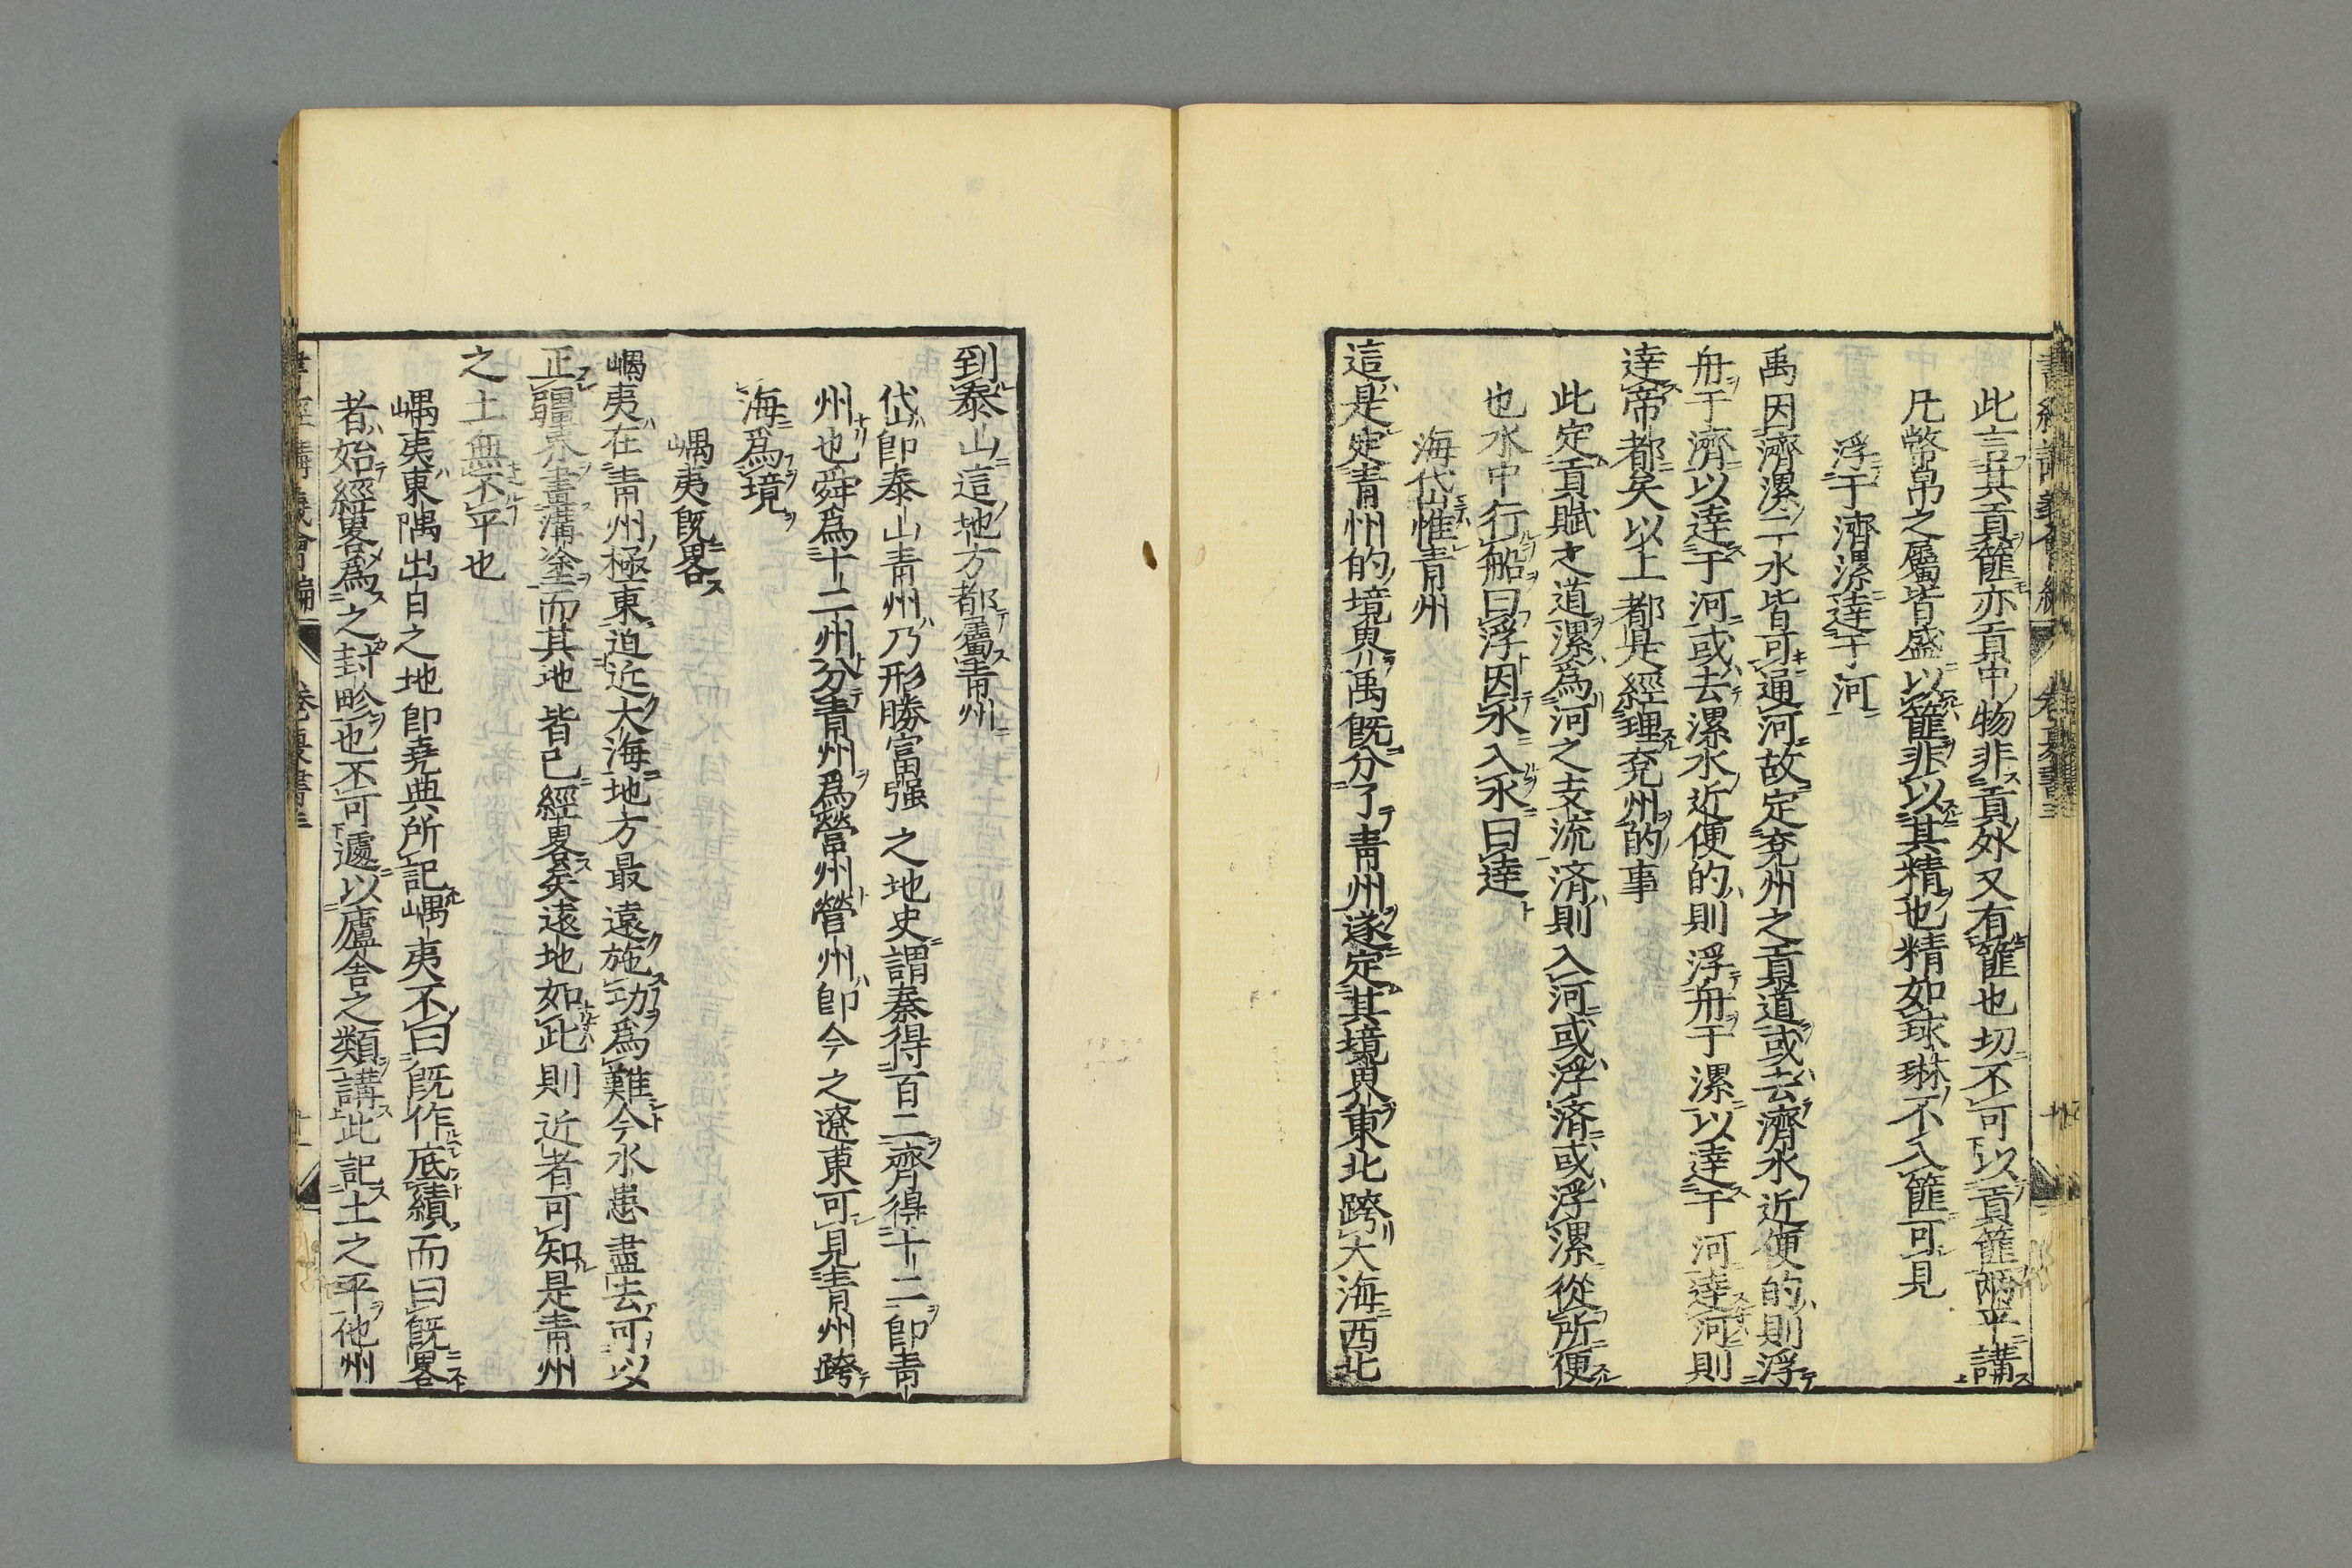 此言其貢篚亦貢中物非貢外又有篚也切不可以貢篚兩平講
凡幣帛之屬皆盛以篚非以其精也精如球琳不入篚可見
浮于濟漯達于河
禹因濟漯二水皆可通河故定兗州之貢道或去濟水近便的則浮
舟于濟以達于河或去漯水近便的則浮舟于漯以達于河達河則
達帝都矣以上都是經理兗州的事
此定貢賦之道漯爲河之支流済則入河或浮済或浮漯從所便
也水中行船曰浮因水入水曰達
海岱惟青州
這是定青州的境界禹既分了青州遂定其境界東北跨大海西北
到泰山這地方都屬青州
岱卽泰山青州乃形勝富强之地史謂秦得百二齊得十二卽青
州也舜爲十二州分青州爲營州營州卽今之遼東可見青州跨
海爲境
嵎夷既畧
嵎夷在青州極東迫近大海地方最遠施功爲難今水患盡去可以
正疆界畫溝塗而其地皆已經畧矣遠地如此則近者可知是青州
之土無不平也
嵎夷東隅出日之地卽堯典所記嵎夷不曰既作底績而曰既畧
者始經畧爲之封畛也不可遽以廬舍之類講此記土之平他州